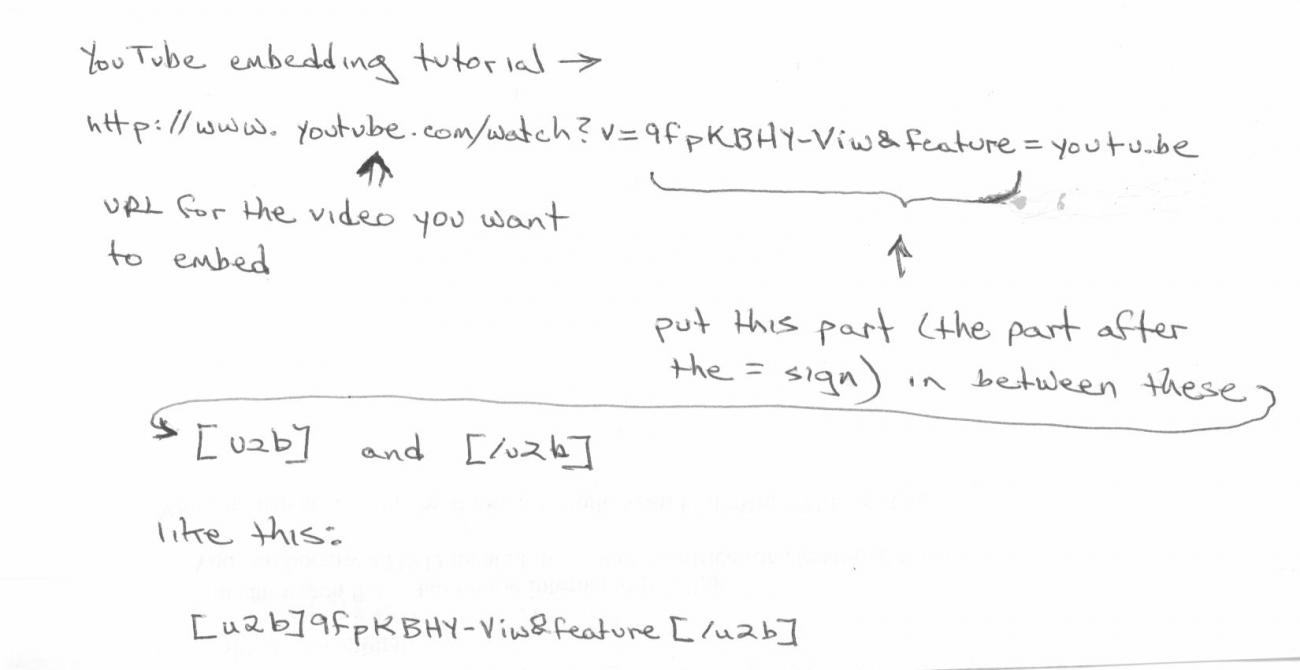 YouTube embedding tutorial →
http://www.youtube.com/watch?v=9fpKBHY-Viw&feature=youtu.be
URL for the video you want
to embed
put this part (the part after
the = sign) in between these
[u2b] and [/u2b]
like this:
[u2b]9fpKBHY-Viw&feature[/u2b]